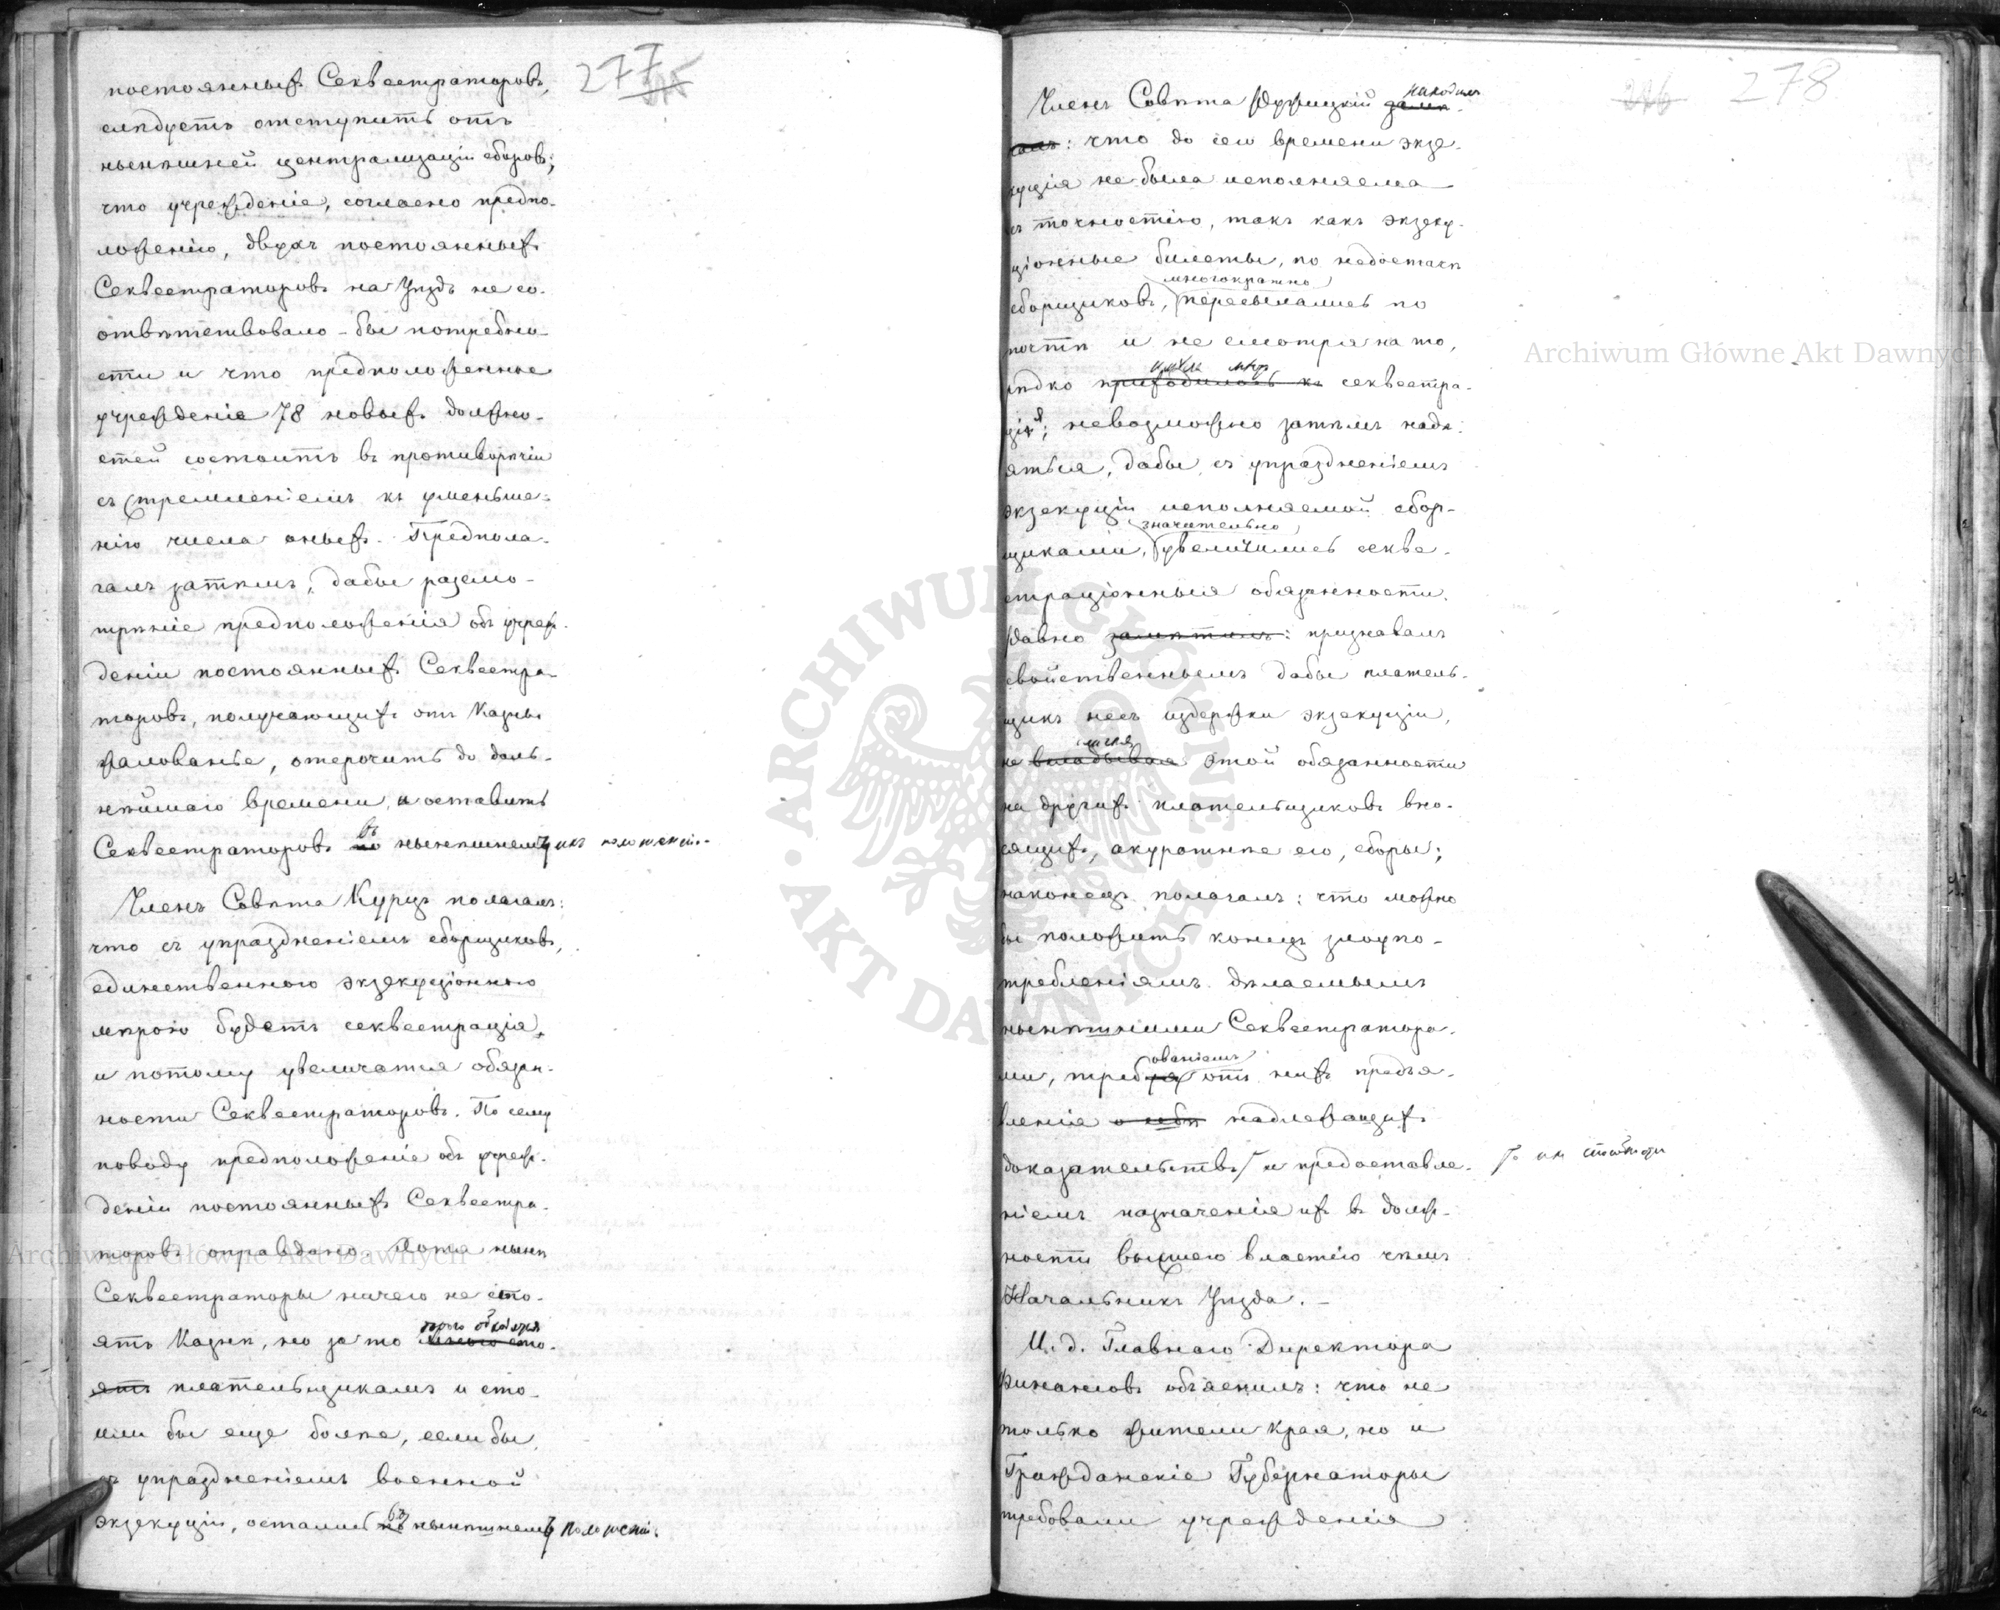 277
постоянныхъ Секвестраторовъ,
слѣдуетъ отступить отъ
нынѣшней централизаціи сборовъ;
что учрежденіе, согласно предпо-
ложенію, двухъ постоянныхъ
Секвестраторовъ на Уѣздъ не со-
отвѣтствовало-бы потребно-
сти и что предположенное
учрежденіе 78 новыхъ должно-
стей состоитъ въ противорѣчіи
съ стремленіемъ къ уменьше-
нію числа оныхъ. Предпола-
галъ затѣмъ, дабы разсмо-
трѣніе предположенія объ учреж-
деніи постоянныхъ Секвестра-
торовъ, получающихъ отъ Казны
жалованье, отсрочить до даль-
нѣйшаго времени, и оставить
Секвестраторовъ въ нынѣшнемъ ихъ положеніи.
Членъ Совѣта Курцъ полагалъ:
что съ упраздненіемъ сборщиковъ,
единственною экзекуціонною
мѣрою будетъ секвестрація,
и потому увеличатся обязан-
ности Секвестраторовъ. По сему
поводу предположеніе объ учреж-
деніи постоянныхъ Секвестра-
торовъ оправдано. Хотя нынѣ
Секвестраторы ничего не сто-
ятъ Казнѣ, но за то
ятъ плательщикамъ и сто-
или бы еще болѣе, если бы,
съ упраздненіемъ военной
экзекуціи, остались въ нынѣшнемъ положеніи.
278
Членъ Совѣта находилъ
: что до сего времени экзе-
куція не была исполняема
съ точностію, такъ какъ экзеку-
ціонные билеты, по недостачѣ
многократно
сборщиковъ, пересылались по
почтѣ и не смотря на то,
рѣдко приходилось къ секвестра-
ція; невозможно затѣмъ надѣ-
яться, дабы, съ упраздненіемъ
экзекуціи исполняемой сбор-
значительно
щиками, увеличились секве-
страціонныя обязанности.
Давно замѣтилъ: признавалъ
свойственнымъ дабы платель-
щикъ несъ издержки экзекуціи,
не вкладывая этой обязанности
на другихъ плательщиковъ вно-
сящихъ, акуратнѣе его, сборы;
наконецъ полагалъ: что можно
бы положить конецъ злоупо-
требленіямъ дѣлаемымъ
нынѣшними Секвестратора-
ованіемъ
ми, требуя отъ нихъ предъя-
вленія о себѣ надлежащихъ
доказательствъ и предоставле-
ніемъ назначенія ихъ въ долж-
ности высшею властію чѣмъ
Начальникъ Уѣзда. -
И. д. Главнаго Директора
Финансовъ объяснилъ: что не
только жители края, но и
Гражданскіе Губернаторы
требовали учрежденія
Archiwum Główne Akt Dawnych
Archiwum Główne Akt Dawnych
ARCHIWUM GŁÓWNE · AKT DAWNYCH ·